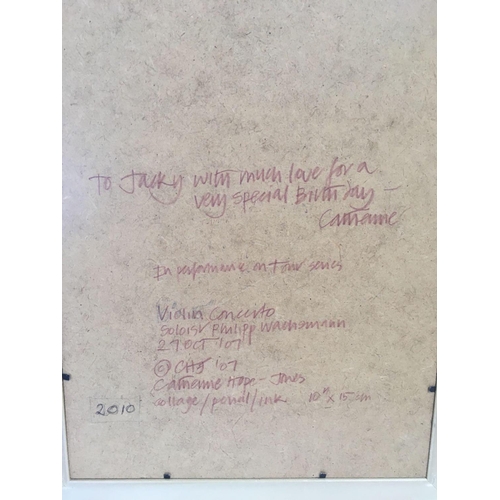 To Jacky with much love for a
very special Birthday –
Catherine
In performance on tour series
Violin Concerto
Soloist Philipp Wachsmann
27 OCT '07
© CHJ '07
Catherine Hope-Jones
collage/pencil/ink 10" x 15 cm
2010